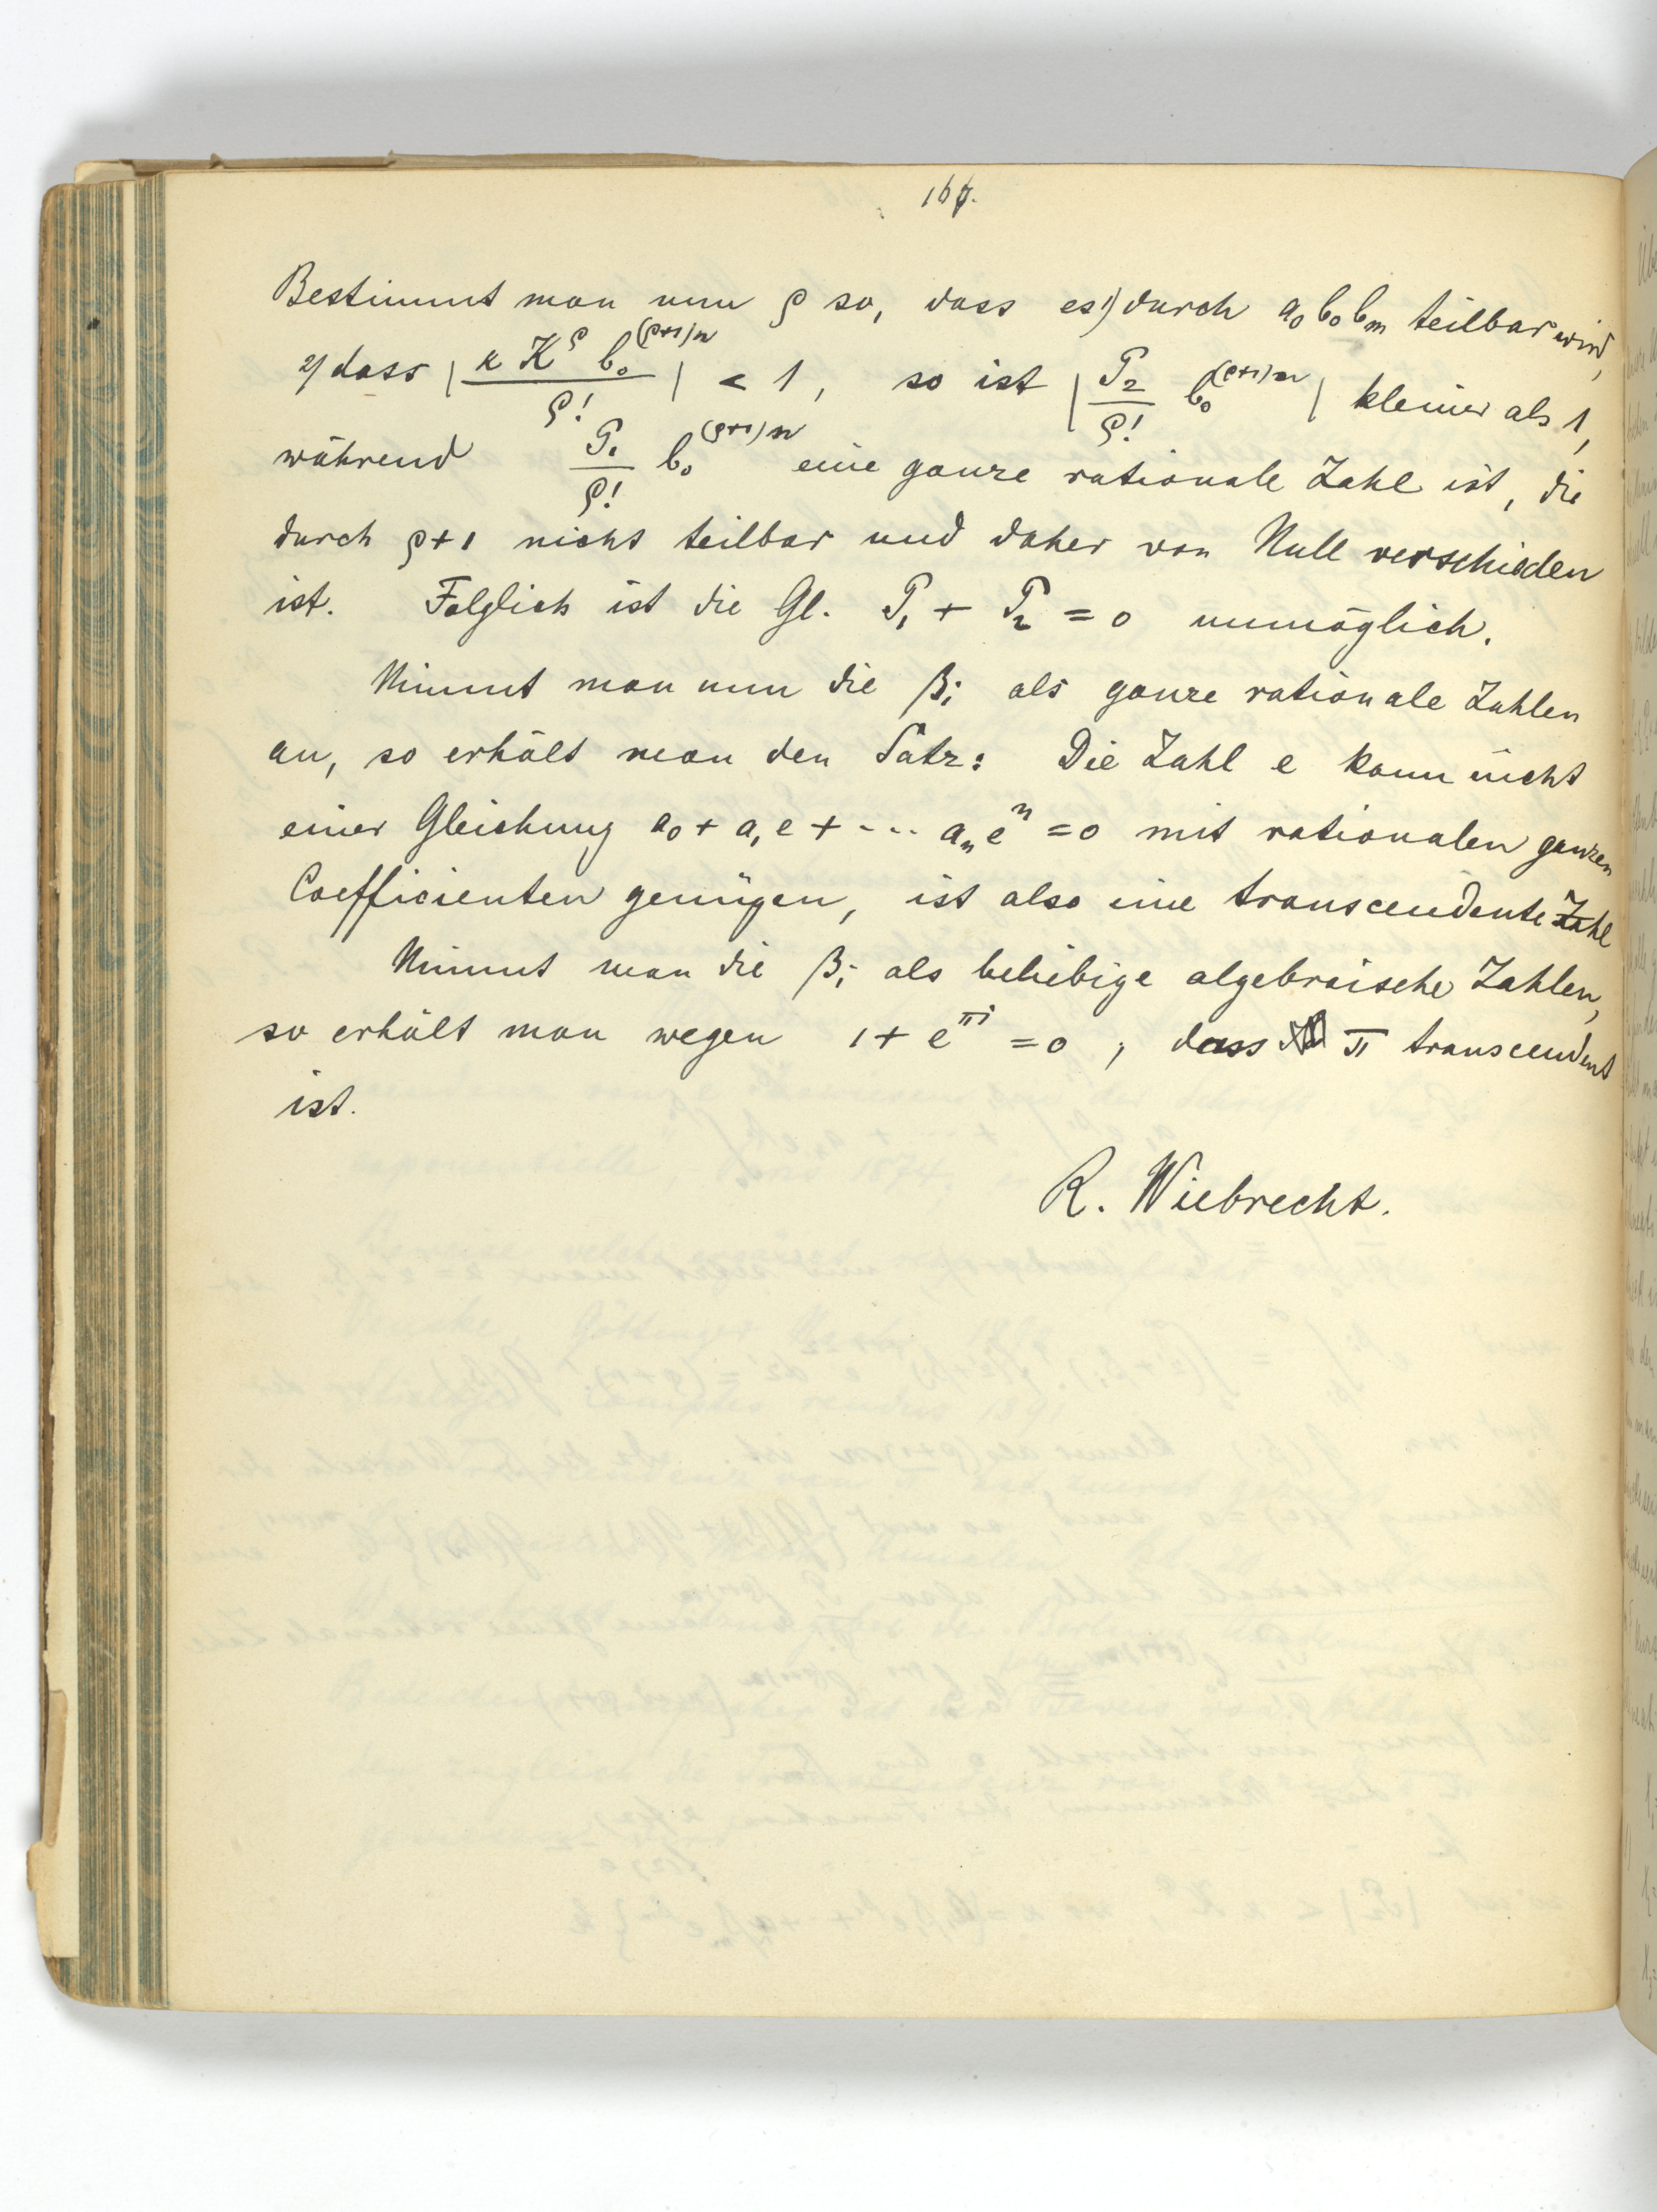 167.
Bestimmt man nun ρ so, dass es 1) durch a₀ b₀ bₘ teilbar wird,
2) dass | κ K^ρ b₀^(ρ+1)n / ρ! | < 1, so ist | P₂/ρ! b₀^(ρ+1)n | kleiner als 1,
während P₁/ρ! b₀^(ρ+1)n eine ganze rationale Zahl ist, die
durch ρ+1 nicht teilbar und daher von Null verschieden
ist. Folglich ist die Gl. P₁ + P₂ = 0 unmöglich.
Nimmt man nun die βᵢ als ganze rationale Zahlen
an, so erhält man den Satz: Die Zahl e kann nicht
einer Gleichung a₀ + a₁e + ··· aₙeⁿ = 0 mit rationalen ganzen
Coefficienten genügen, ist also eine transcendente Zahl
Nimmt man die βᵢ als beliebige algebraische Zahlen,
so erhält man wegen 1 + e^πi = 0, dass π transcendent
ist.
R. Wiebrecht.